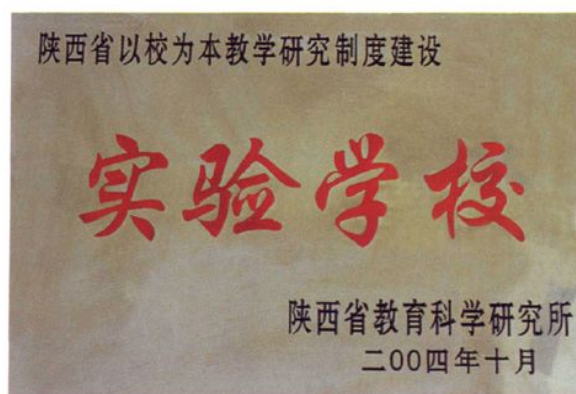 陕西省以校为本教学研究制度建设
实验学校
陕西省教育科学研究所
二00四年十月